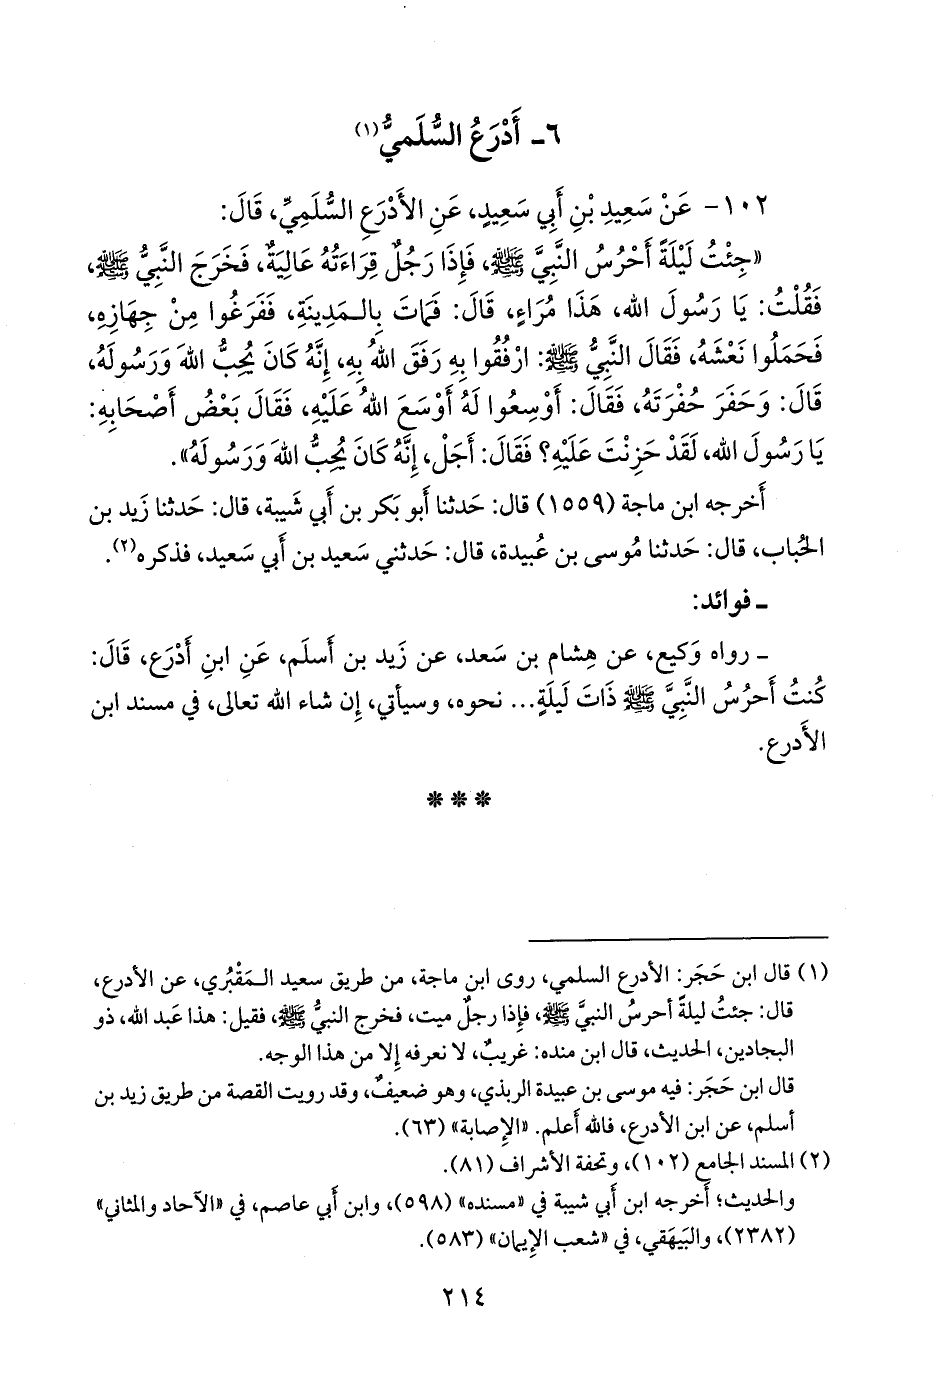 ٦ـ أَدْرَعُ السُّلَميُّ(١)
١٠٢- عَنْ سَعِيدِ بْنِ أَبِي سَعِيدٍ، عَنِ الأَدْرَعِ السُّلَمِيِّ، قَالَ:
«جِئْتُ لَيْلَةً أَحْرُسُ النَّبِيَّ ﷺ، فَإِذَا رَجُلٌ قِرَاءَتُهُ عَالِيَةٌ، فَخَرَجَ النَّبِيُّ ﷺ،
فَقُلْتُ: يَا رَسُولَ الله، هَذَا مُرَاءٍ، قَالَ: فَمَاتَ بِالـمَدِينَةِ، فَفَرَغُوا مِنْ جِهَازِهِ،
فَحَمَلُوا نَعْشَهُ، فَقَالَ النَّبِيُّ ﷺ: ارْفُقُوا بِهِ رَفَقَ اللهُ بِهِ، إِنَّهُ كَانَ يُحِبُّ اللهَ وَرَسُولَهُ،
قَالَ: وَحَفَرَ حُفْرَتَهُ، فَقَالَ: أَوْسِعُوا لَهُ أَوْسَعَ اللهُ عَلَيْهِ، فَقَالَ بَعْضُ أَصْحَابِهِ:
يَا رَسُولَ الله، لَقَدْ حَزِنْتَ عَلَيْهِ؟ فَقَالَ: أَجَلْ، إِنَّهُ كَانَ يُحِبُّ اللهَ وَرَسُولَهُ».
أَخرجه ابن ماجة (١٥٥٩) قال: حَدثنا أَبو بَكر بن أَبي شَيبة، قال: حَدثنا زَيد بن
الحُباب، قال: حَدثنا مُوسى بن عُبيدة، قال: حَدثني سَعيد بن أَبي سَعيد، فذكره(٢).
ـ فوائد:
ـ رواه وَكيع، عن هِشام بن سَعد، عن زَيد بن أَسلَم، عَنِ ابنِ أَدْرَع، قَالَ:
كُنتُ أَحرُسُ النَّبِيَّ ﷺ ذَاتَ لَيلَةٍ... نحوه، وسيأتي، إِن شاء الله تعالى، في مسند ابن
الأَدرع.
*** 
(١) قال ابن حَجَر: الأدرع السلمي، روى ابن ماجة، من طريق سعيد الـمَقْبُري، عن الأدرع،
قال: جئتُ ليلةً أحرسُ النبيَّ ﷺ، فإذا رجلٌ ميت، فخرج النبيُّ ﷺ، فقيل: هذا عَبد الله، ذو
البجادين، الحديث، قال ابن منده: غريبٌ، لا نعرفه إلا من هذا الوجه.
قال ابن حَجَر: فيه موسى بن عبيدة الربذي، وهو ضعيفٌ، وقد رويت القصة من طريق زيد بن
أسلم، عن ابن الأدرع، فالله أعلم. «الإصابة» (٦٣).
(٢) المسند الجامع (١٠٢)، وتحفة الأشراف (٨١).
والحديث؛ أخرجه ابن أبي شيبة في «مسنده» (٥٩٨)، وابن أبي عاصم، في «الآحاد والمثاني»
(٢٣٨٢)، والبَيهَقي، في «شعب الإيمان» (٥٨٣).
٢١٤